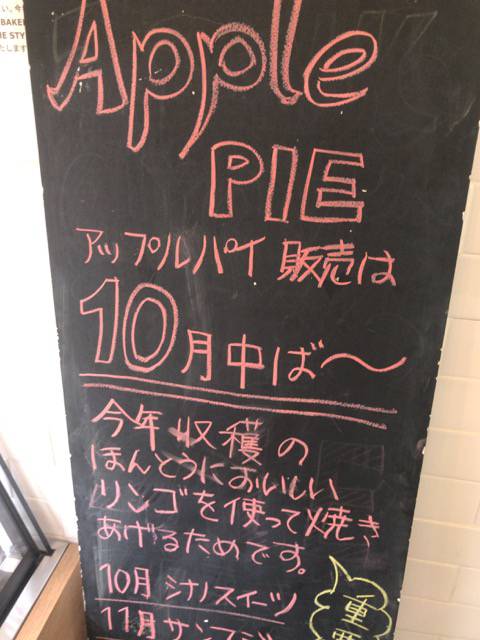 Apple
PIE
アップルパイ 販売は
10月中ば〜
今年 収穫の
ほんとうにおいしい
リンゴを使って焼き
あげるためです。
10月 シナノスイーツ
11月 サンフジ
重要